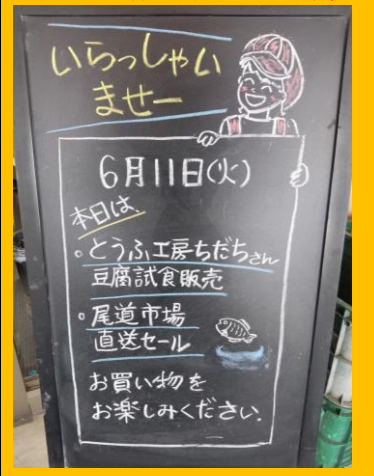 いらっしゃい
ませー
6月11日(火)
本日は、
・とうふ工房ちだちさん
豆腐試食販売
・尾道市場
直送セール
お買い物を
お楽しみください.